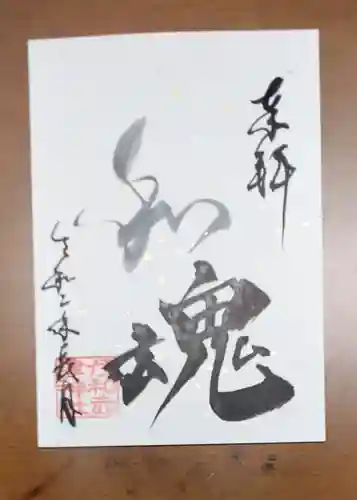 奉拝
和
魂
令和二年長月